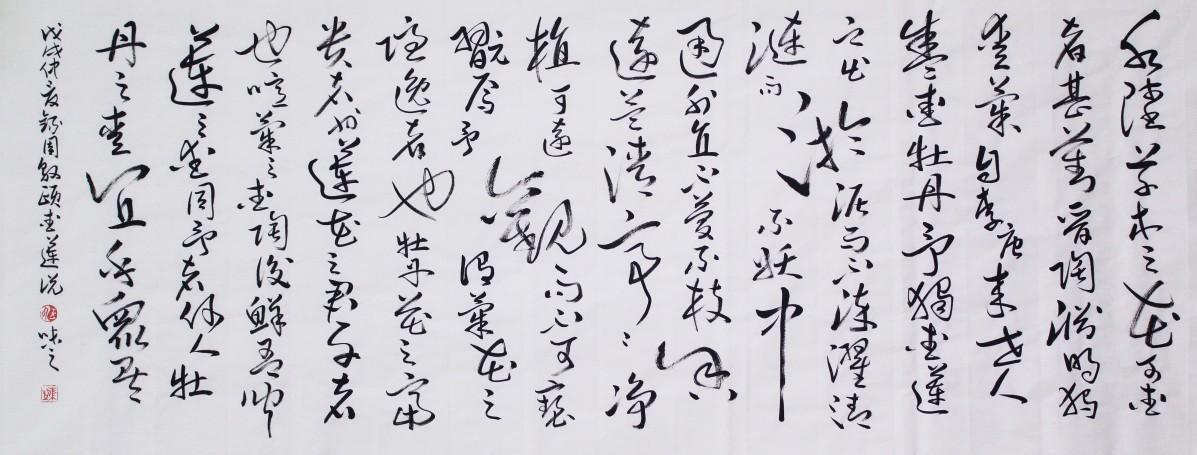 水陸草木之花可愛
者甚蕃晉陶淵明獨
愛菊自李唐來世人
盛愛牡丹予獨愛蓮
之出於泥而不染濯清
漣而不妖中
通外直不蔓不枝香
遠益清亭〻净
植可遠觀而不可褻
翫焉予謂菊花之
隱逸者也牡丹花之富
貴者也蓮花之君子者
也噫菊之愛陶後鮮有聞
蓮之愛同予者何人牡
丹之愛宜乎眾矣
戊戌仲夏錄周敦頤愛蓮说